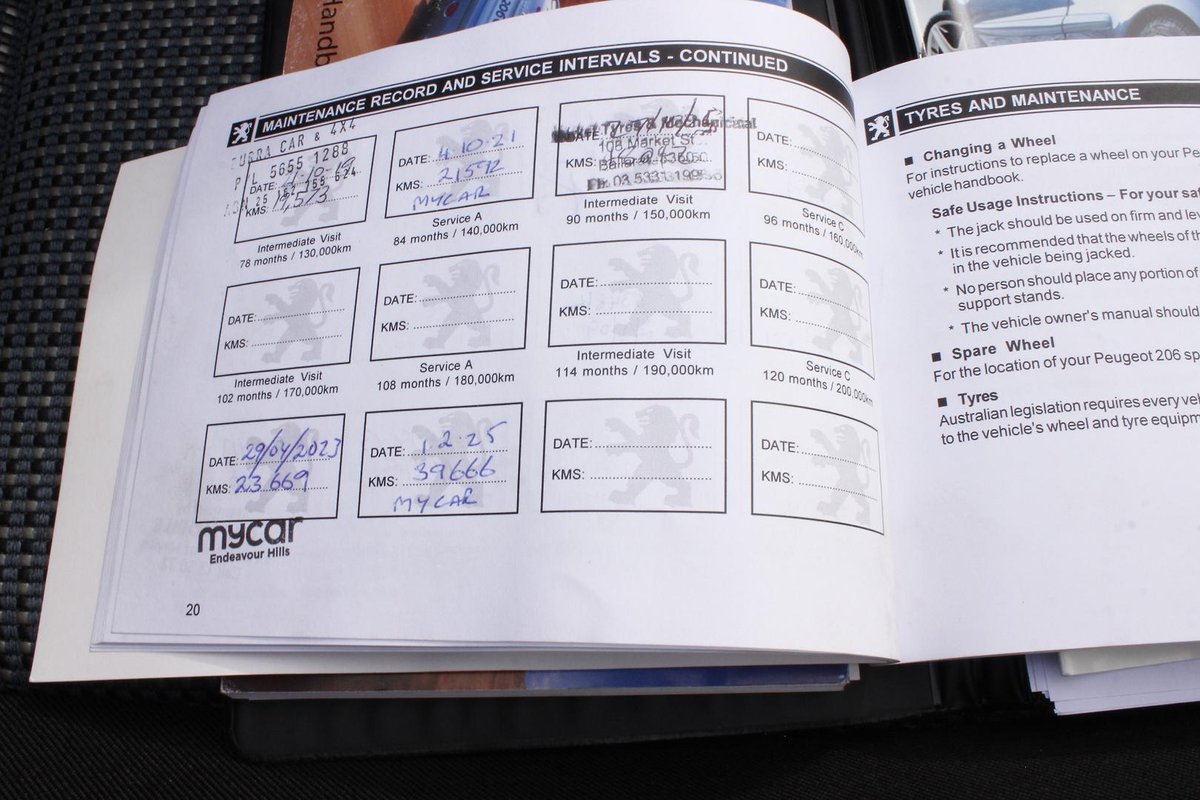 Handb
MAINTENANCE RECORD AND SERVICE INTERVALS - CONTINUED
CAR & 4X4
5655 1288
DATE:
KMS: 19,573
Intermediate Visit
78 months / 130,000km
DATE: 4.10.21
KMS: 21592
MYCAR
Service A
84 months / 140,000km
Tyres & Mechanical
DATE:
108 Market St
KMS:
Ballarat
Ph: 03 5331
Intermediate Visit
90 months / 150,000km
DATE:
KMS:
Service C
96 months / 160,000km
DATE:
KMS:
Intermediate Visit
102 months / 170,000km
DATE:
KMS:
Service A
108 months / 180,000km
DATE:
KMS:
Intermediate Visit
114 months / 190,000km
DATE:
KMS:
Service C
120 months / 200,000km
DATE: 29/04/2023
KMS: 23 669
mycar
Endeavour Hills
DATE: 1.2.25
KMS: 39666
MYCAR
DATE:
KMS:
DATE:
KMS:
20
TYRES AND MAINTENANCE
Changing a Wheel
For instructions to replace a wheel on your Pe
vehicle handbook.
Safe Usage Instructions – For your saf
* The jack should be used on firm and le
* It is recommended that the wheels of th
in the vehicle being jacked.
* No person should place any portion of
support stands.
* The vehicle owner's manual should
Spare Wheel
For the location of your Peugeot 206 sp
Tyres
Australian legislation requires every veh
to the vehicle's wheel and tyre equipm